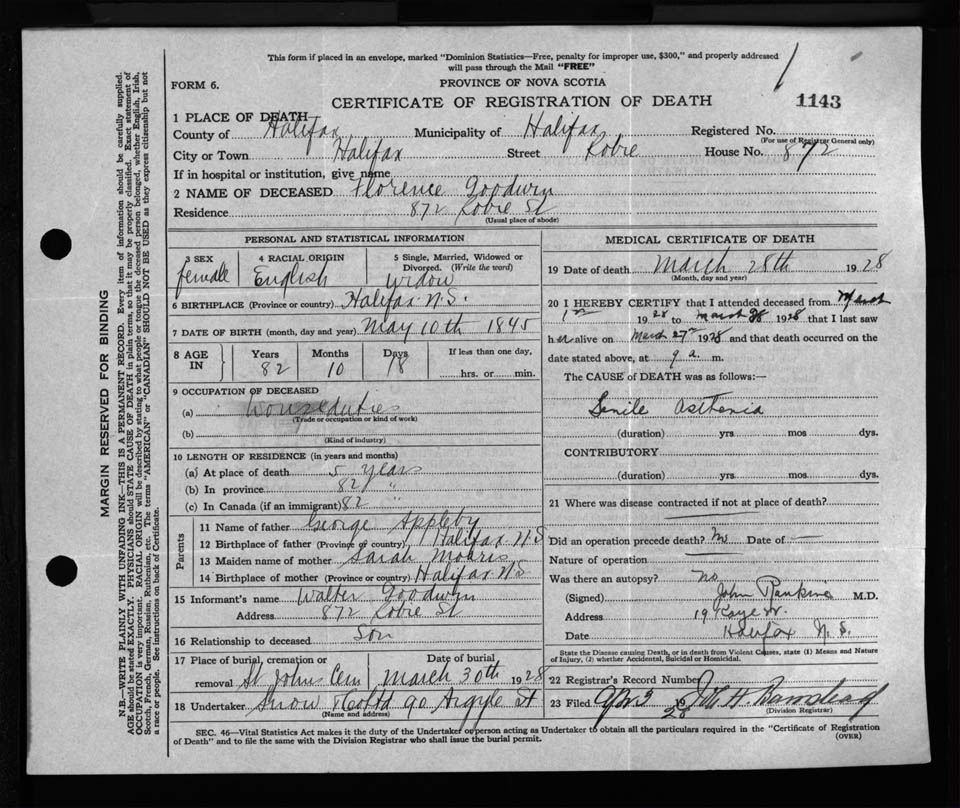 This form if placed in an envelope, marked "Dominion Statistics—Free, penalty for improper use, $300," and properly addressed
will pass through the Mail "FREE"
FORM 6.
PROVINCE OF NOVA SCOTIA
CERTIFICATE OF REGISTRATION OF DEATH
1143
1 PLACE OF DEATH
County of Halifax Municipality of Halifax Registered No.
(For use of Registrar General only)
City or Town Halifax Street Robie House No. 872
If in hospital or institution, give name
2 NAME OF DECEASED Florence Goodwin
Residence 872 Robie St
(Usual place of abode)
PERSONAL AND STATISTICAL INFORMATION
3 SEX female
4 RACIAL ORIGIN English
5 Single, Married, Widowed or Divorced. (Write the word) Widow
6 BIRTHPLACE (Province or country) Halifax N.S.
7 DATE OF BIRTH (month, day and year) May 10th 1845
8 AGE IN Years 82 Months 10 Days 18 If less than one day, hrs. or min.
9 OCCUPATION OF DECEASED
(a)
(Trade or occupation or kind of work)
(b)
(Kind of industry)
10 LENGTH OF RESIDENCE (in years and months)
(a) At place of death 5 years
(b) In province 82 "
(c) In Canada (if an immigrant) 82 "
Parents
11 Name of father George Appleby
12 Birthplace of father (Province or country) Halifax N S
13 Maiden name of mother Sarah Morris
14 Birthplace of mother (Province or country) Halifax N S
15 Informant's name Walter Goodwin
Address 872 Robie St
16 Relationship to deceased Son
17 Place of burial, cremation or removal St Johns Cem
Date of burial March 30th 1928
18 Undertaker Snow & Co Ltd 90 Argyle St
(Name and address)
MEDICAL CERTIFICATE OF DEATH
19 Date of death March 28th 1928
(Month, day and year)
20 I HEREBY CERTIFY that I attended deceased from March
1st 1928 to March 28 1928 that I last saw
her alive on March 27th 1928 and that death occurred on the
date stated above, at 9 a. m.
The CAUSE of DEATH was as follows:—
Senile Asthenia
(duration) yrs mos dys.
CONTRIBUTORY
(duration) yrs. mos dys.
21 Where was disease contracted if not at place of death?
Did an operation precede death? no Date of —
Nature of operation
Was there an autopsy? No
(Signed) John Rankine M.D.
Address 19 Kaye St.
Halifax N.S.
Date
State the Disease causing Death, or in death from Violent Causes, state (1) Means and Nature
of Injury, (2) whether Accidental, Suicidal or Homicidal.
22 Registrar's Record Number
23 Filed Apr 3 1928
(Division Registrar)
SEC. 46—Vital Statistics Act makes it the duty of the Undertaker or person acting as Undertaker to obtain all the particulars required in the "Certificate of Registration
of Death" and to file the same with the Division Registrar who shall issue the burial permit.
(OVER)
MARGIN RESERVED FOR BINDING
N.B.—WRITE PLAINLY WITH UNFADING INK—THIS IS A PERMANENT RECORD. Every item of information should be carefully supplied.
AGE should be stated EXACTLY. PHYSICIANS should STATE CAUSE OF DEATH in plain terms, so that it may be properly classified. Exact statement of
OCCUPATION is very important. RACIAL ORIGIN will be described by stating to what people or tongue the deceased person belonged, whether English, Irish,
Scotch, French, German, Russian, Ruthenian, etc. The terms "AMERICAN" or "CANADIAN" SHOULD NOT BE USED as they express citizenship but not
a race or people. See instructions on back of Certificate.